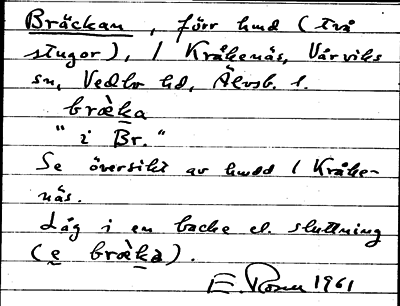 Bräckan, förr hmd (två
stugor), / Kråkenäs, Vårviks
sn, Vedbo hd, Älvsb. l.
bræ̀ka
"i Br."
Se översikt av hmdd / Kråke-
näs.
Låg i en backe el. sluttning
(e bræ̀ka).
E. Rosen 1961